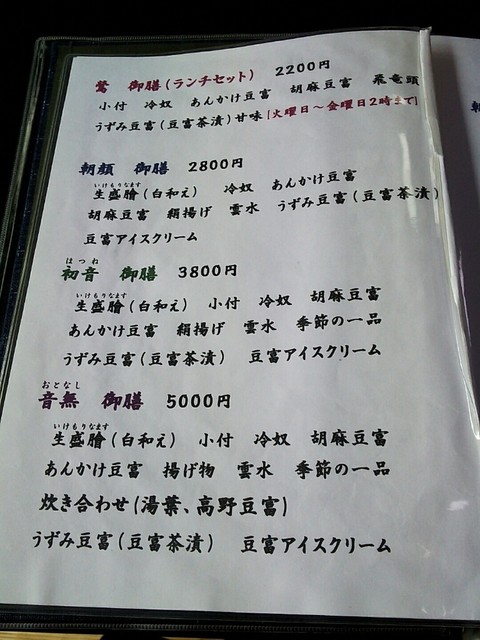 鶯 御膳(ランチセット) 2200円
小付 冷奴 あんかけ豆富 胡麻豆富 飛竜頭
うずみ豆富(豆富茶漬)甘味[火曜日〜金曜日2時まで]
朝顔 御膳 2800円
いけもりなます
生盛膾(白和え) 冷奴 あんかけ豆富
胡麻豆富 絹揚げ 雲水 うずみ豆富(豆富茶漬)
豆富アイスクリーム
はつね
初音 御膳 3800円
いけもりなます
生盛膾(白和え) 小付 冷奴 胡麻豆富
あんかけ豆富 絹揚げ 雲水 季節の一品
うずみ豆富(豆富茶漬) 豆富アイスクリーム
おとなし
音無 御膳 5000円
いけもりなます
生盛膾(白和え) 小付 冷奴 胡麻豆富
あんかけ豆富 揚げ物 雲水 季節の一品
炊き合わせ(湯葉、高野豆富)
うずみ豆富(豆富茶漬) 豆富アイスクリーム